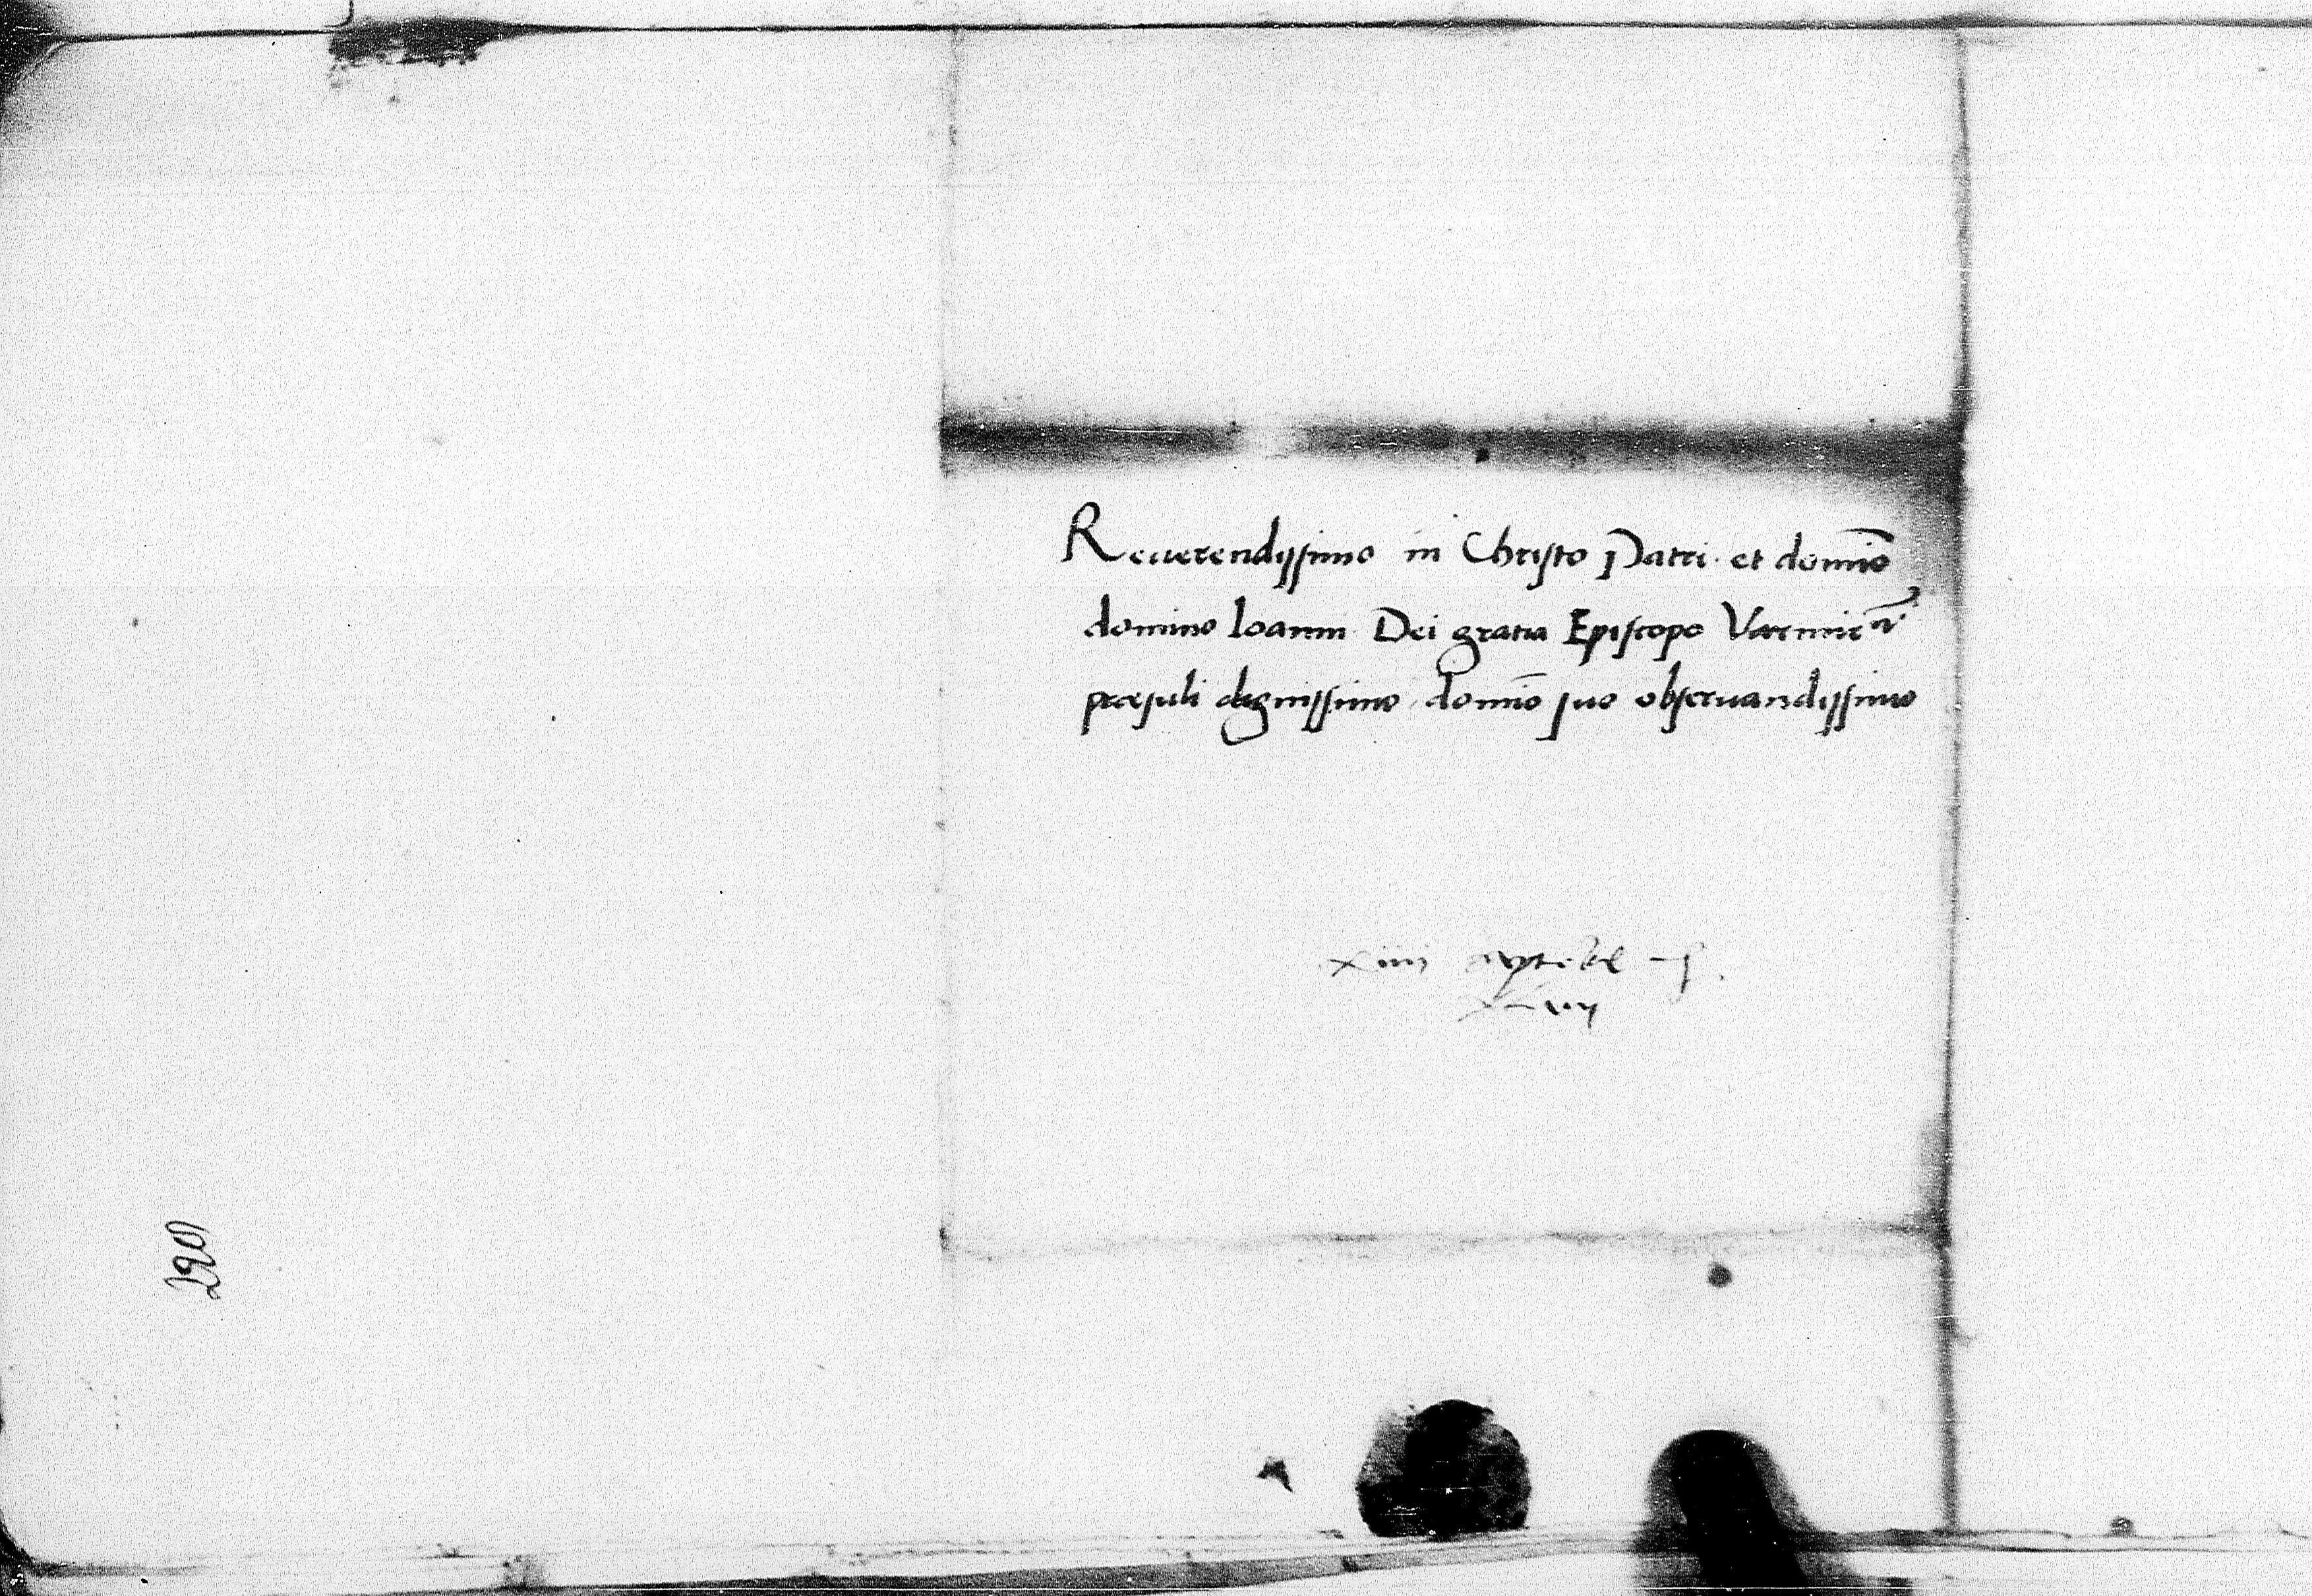 Reuerendissimo in Christo Patri et domi̅o
domino Ioanni Dei gratia Episcopo
præsuli dignissimo domi̅o suo obseruandissimo
xiiii
220